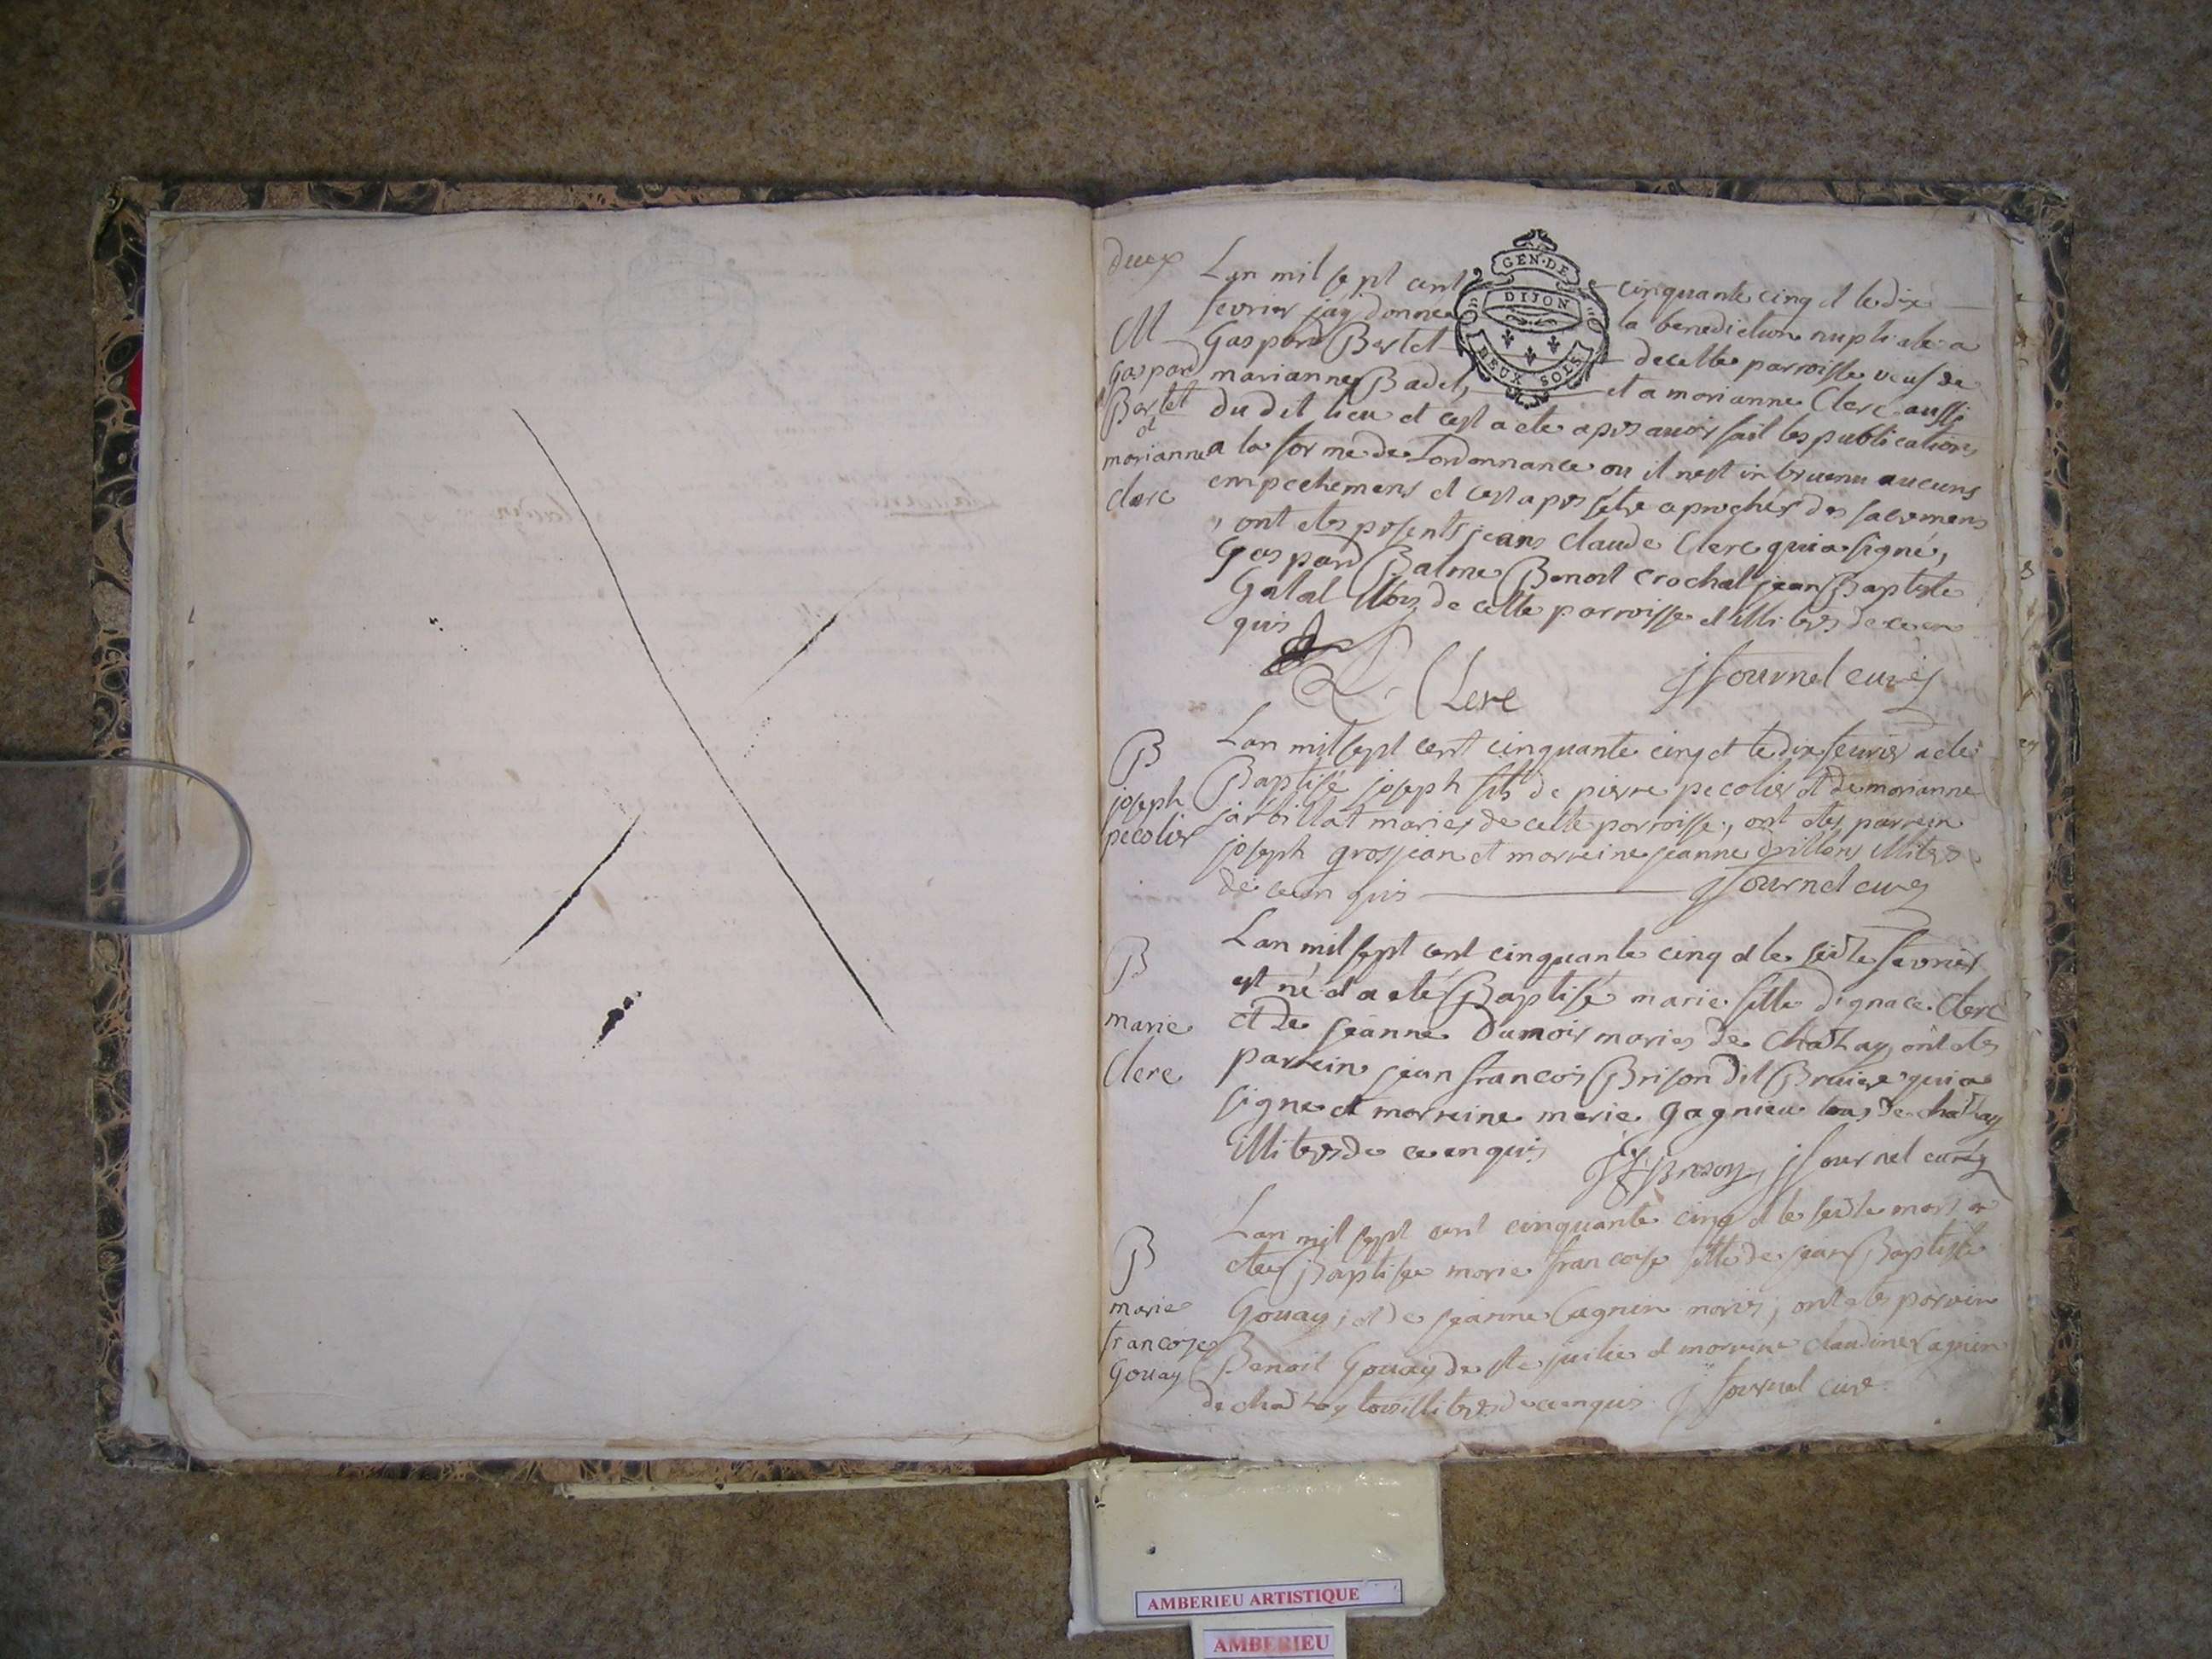 deux
GEN·DE
DIJON
DEUX SOLS
M
Gaspard
Bertet
et
marianne
clerc
Lan mil sept cent cinquante cinq et le dix
fevrier jay donne la benediction nuptiale a
Gaspard Bertet de cette parroisse veuf de
marianne Badet, et a marianne Clerc aussi
du dit lieu et cest a ete apres avoir fait les publications
a la forme de Lordonnance ou il nest intervenu aucuns
empechemens et cest apres setre aprocher des sacremens
, ont etes presents jean claude Clerc qui a signé,
Gaspard Balme Benoit crochat jean Baptiste
Galal tous de cette parroisse et illiteres de ce en
quis
Clerc jfournet curé
B
joseph
pecolier
Lan mil sept cent cinquante cinq et le dix fevrier a ete
Baptisé joseph fils de pierre pecolier et de marianne
jarbillat maries de cette parroisse, ont etes parrein
joseph grosjean et marreine jeanne drillon illiteres
de ce en quis jfournet curé
B
marie
Clerc
Lan mil sept cent cinquante cinq et le seizle fevrier
est né et a eté Baptisé marie fille dignace Clerc
et de jeanne Dumoir maries de chaZay, ont etes
parrein jean francois Brison dit Bruiere qui a
signe et marreine marie gagnieu tous de chaZay
illiteres de ce enquis jf Brison jfournet curé
B
marie
francoise
Gouay
Lan mil sept cent cinquante cinq et le seizle mars a
etee Baptisee marie francoise fille de jean Baptiste
Gouay, et de jeanne Cagnin maries, ont etes parrein
Benoit Gouay de ste julie et marreine claudine Cagnin
de chaZay tous illiteres de ce enquis j fournet curé
AMBERIEU ARTISTIQUE
AMBERIEU